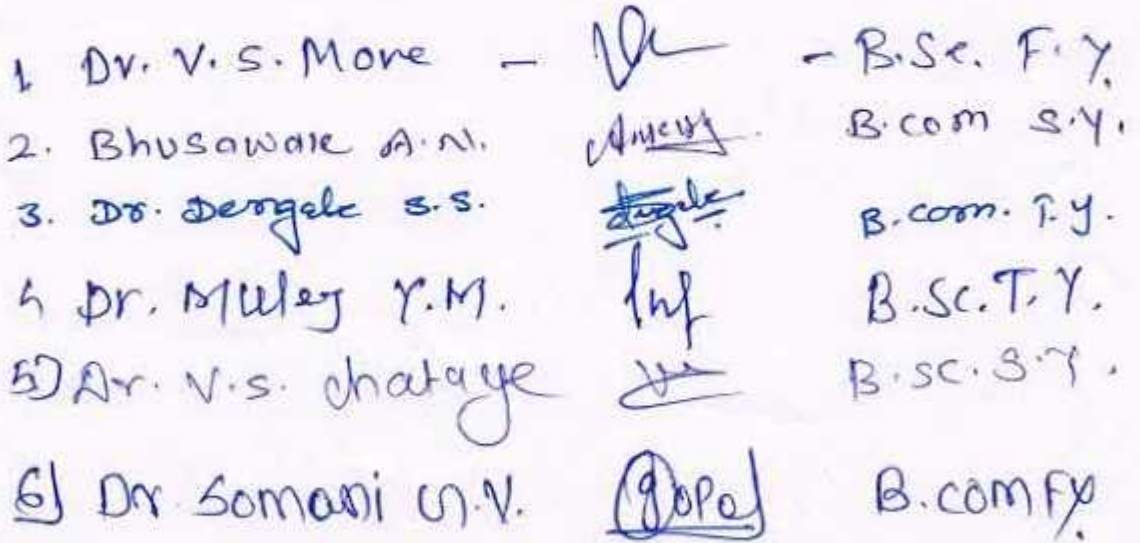 1 Dr. V. S. More - - B.Sc. F.Y.
2. Bhusaware A.N. B.com S.Y.
3. Dr. Dengale S.S. B.com. T.Y.
4 Dr. Muley Y.M. B.Sc. T.Y.
5) Dr. V.S. chataye B.sc. S.Y.
6) Dr. Somani G.V. Gopal B.com F.Y.